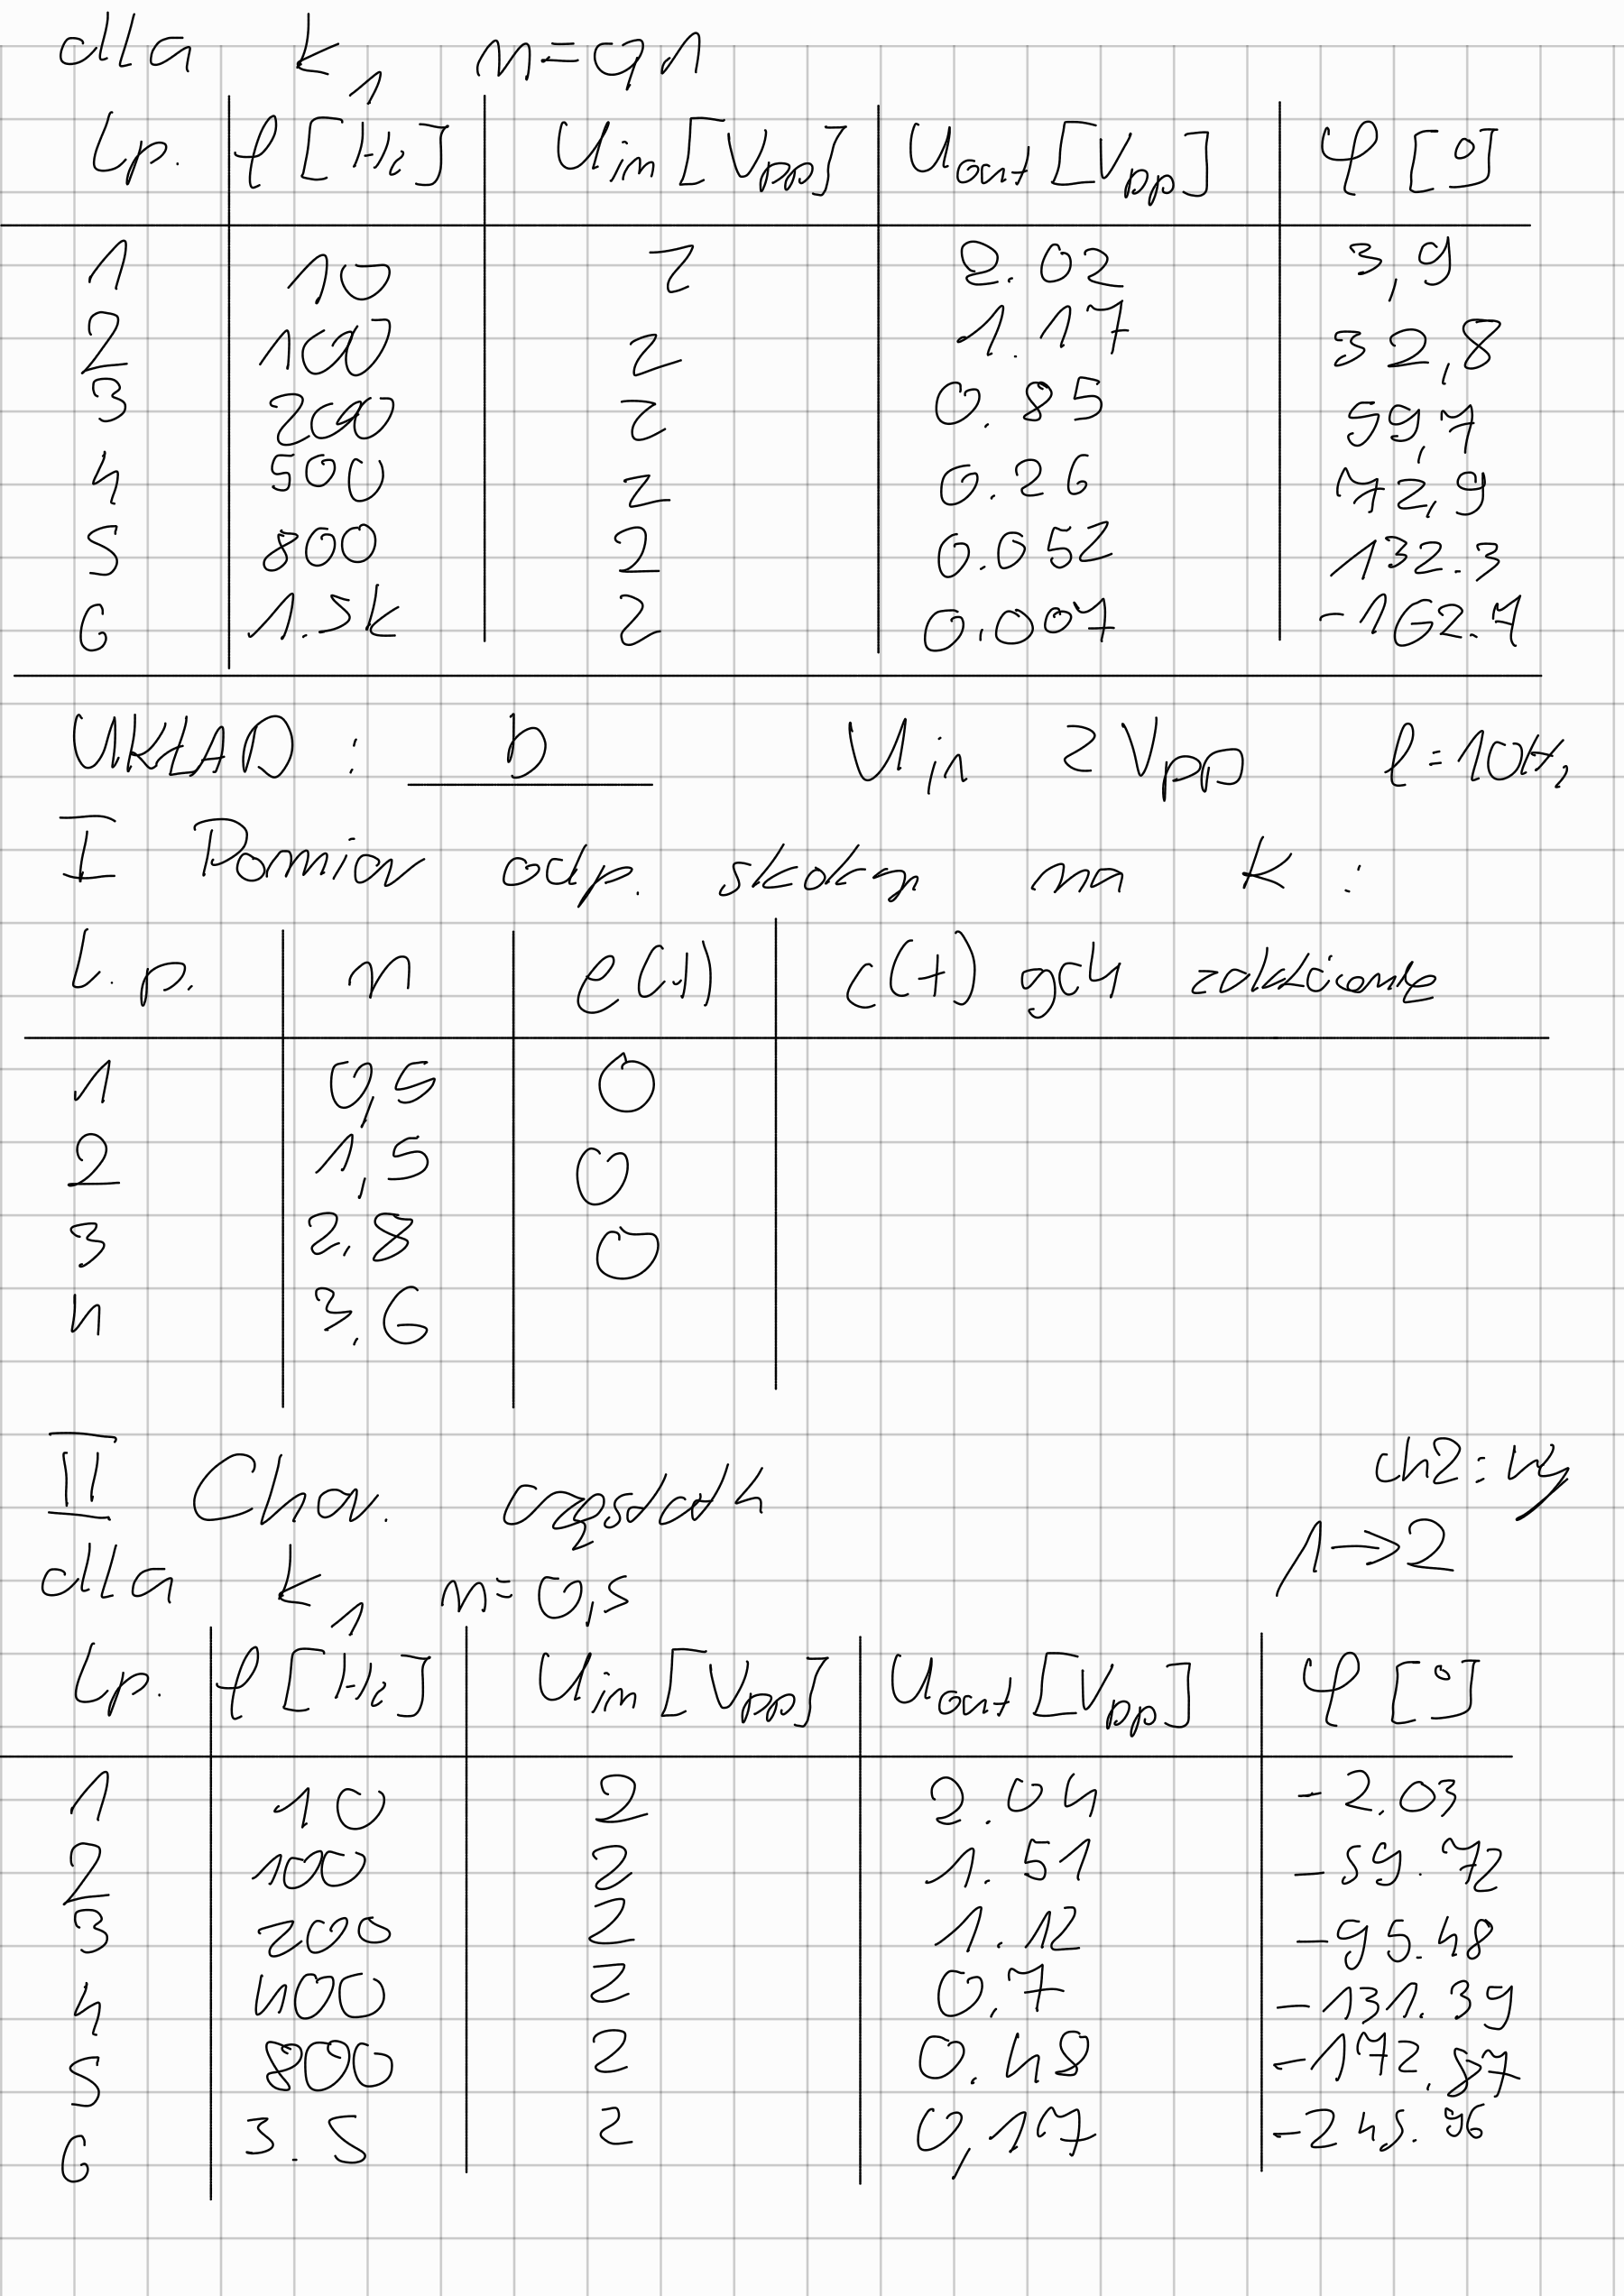 dla k1 n=0,1
Lp. f [Hz] Uin [Vpp] Uout [Vpp] φ [°]
1 10 2 2.02 3,9
2 100 2 1.17 32,8
3 200 2 0.85 59,7
4 500 2 0.26 72,9
5 800 2 0.052 132.3
6 1.5k 2 0.007 -162.7
UKŁAD : b Uin 2Vpp f=10Hz
I Pomiar odp. skokowy na k :
l.p. n e(t) c(t) gdy zakłócenie
1 0,5 0
2 1,5 0
3 2,8 0
4 3.6
II Char. częstotl.
ch2: wy
1→2
dla k1 n=0,5
Lp. f [Hz] Uin [Vpp] Uout [Vpp] φ [°]
1 10 2 2.04 -2.03
2 100 2 1.51 -59.72
3 200 2 1.12 -95.48
4 400 2 0,7 -131.39
5 800 2 0.48 -172.87
6 3.5 2 0,17 -245.96